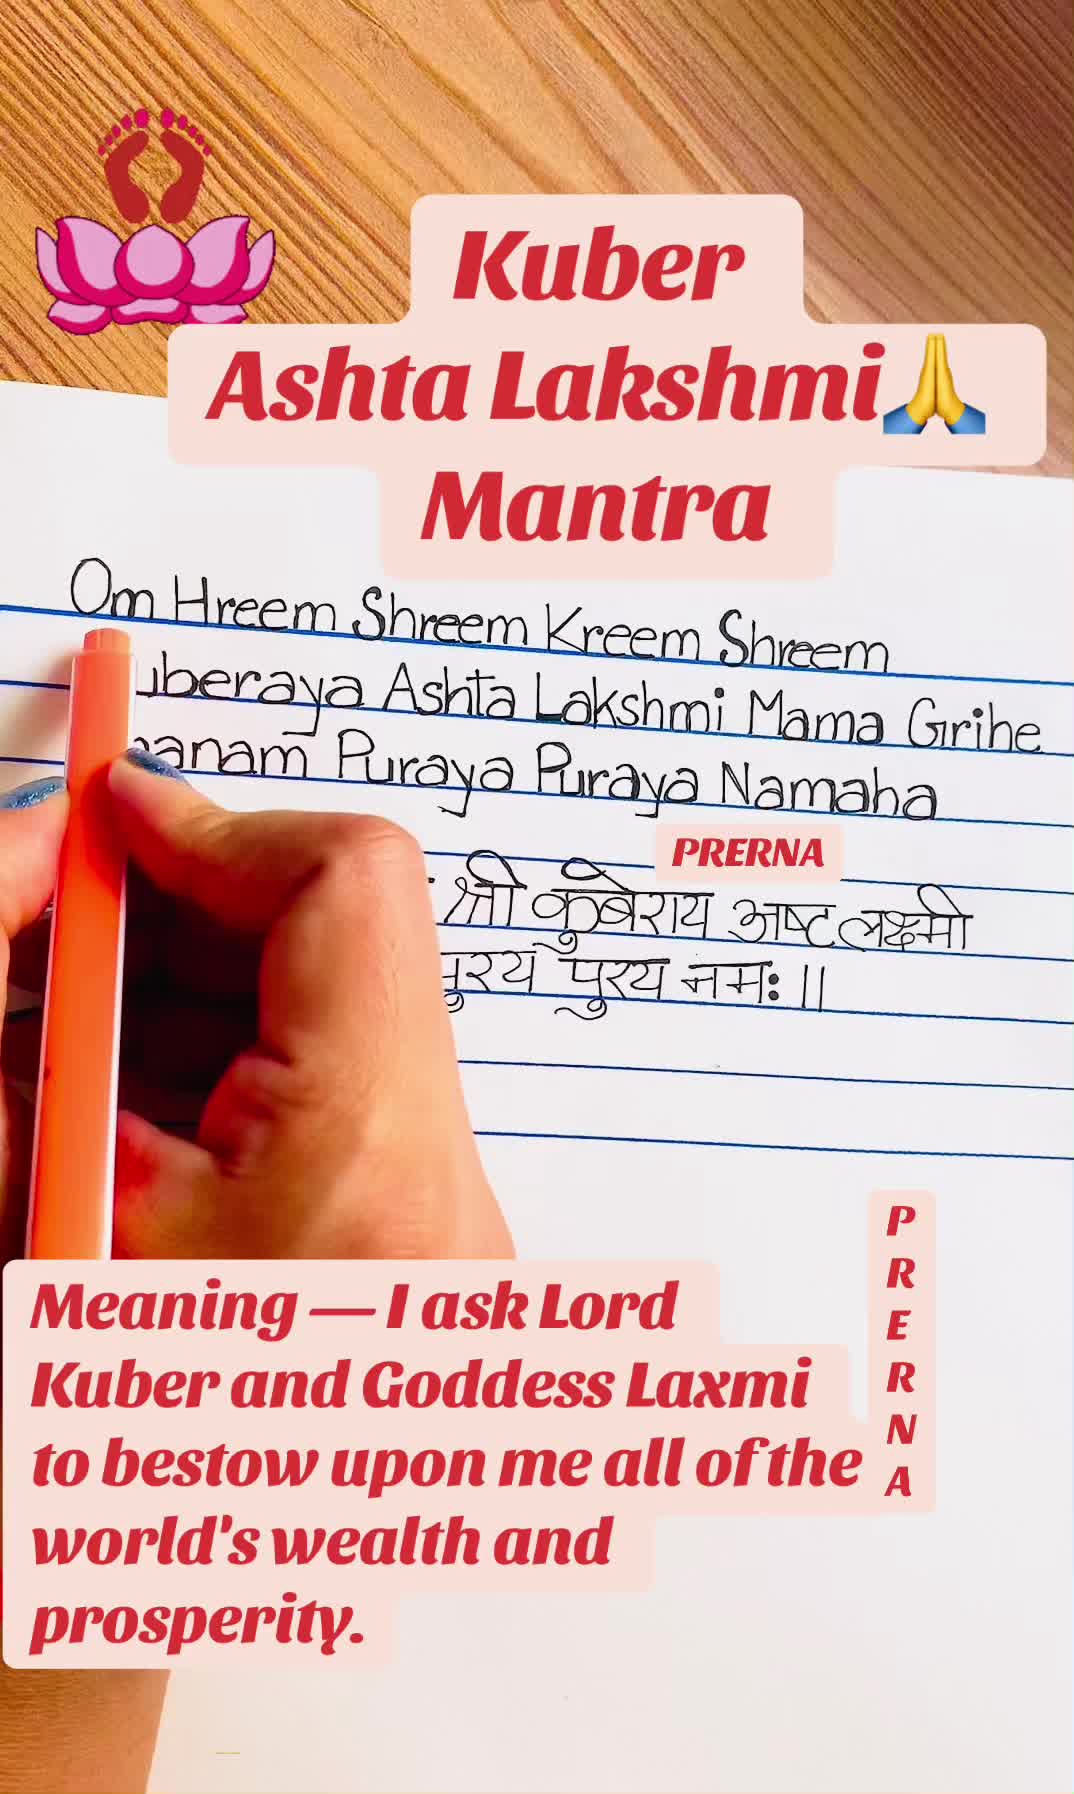 Kuber
Ashta Lakshmi🙏
Mantra
Om Hreem Shreem Kreem Shreem
Ashta Lakshmi Mama Grihe
Puraya Puraya Namaha
PRERNA
श्री कुबेराय अष्ट लक्ष्मी
पुरय नमः ||
PRERNA
Meaning — I ask Lord
Kuber and Goddess Laxmi
to bestow upon me all of the
world's wealth and
prosperity.